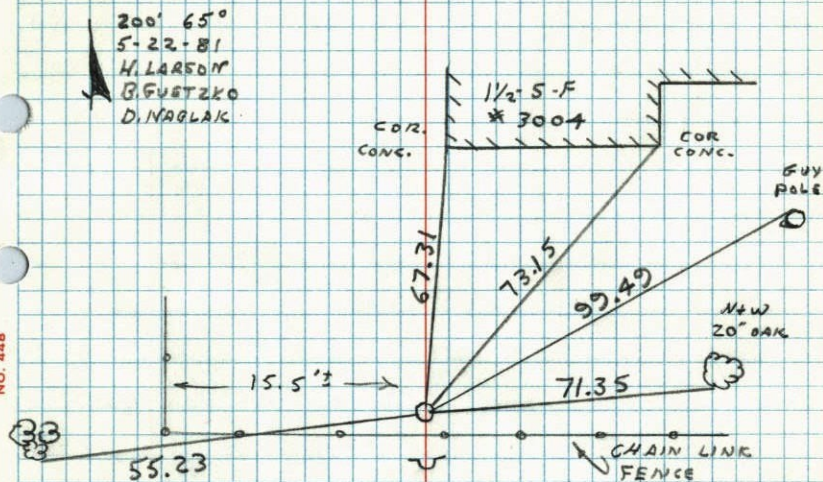 200' 65°
5-22-81
H. LARSON
B. GUETZKO
D. NAGLAK
1½-S-F
# 3004
COR.
CONC.
COR
CONC.
GUY
POLE
67.31
73.15
99.49
N+W
20" OAK
71.35
15.5'±
55.23
CHAIN LINK
FENCE
NO. 448